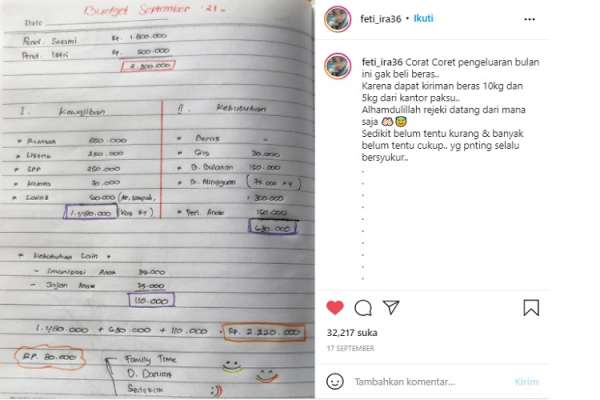 Budget September '21
Date
Pend. Suami Rp. 1.800.000
Pend. Istri Rp. 500.000
2.300.000
I. Kewajiban
II. Kebutuhan
250.000
* SPP 250.000
1.480.000
* Beras -
* Gas 30.000
* B. Bulanan 150.000
* B. Mingguan (75.000 x 4)
= 300.000
* Peri. Anak 150.000
630.000
* Kebutuhan Lain *
- Imunisasi Anak
- Jajan Anak
110.000
1.480.000 + 630.000 + 110.000 = Rp. 2.220.000
RP. 80.000
Family Time
D. Darurat
Sedekah
feti_ira36 • Ikuti
feti_ira36 Corat Coret pengeluaran bulan
ini gak beli beras..
Karena dapat kiriman beras 10kg dan
5kg dari kantor paksu..
Alhamdulillah rejeki datang dari mana
saja
Sedikit belum tentu kurang & banyak
belum tentu cukup.. yg pnting selalu
bersyukur..
.
.
.
.
.
.
.
32,217 suka
17 SEPTEMBER
Tambahkan komentar...
Kirim